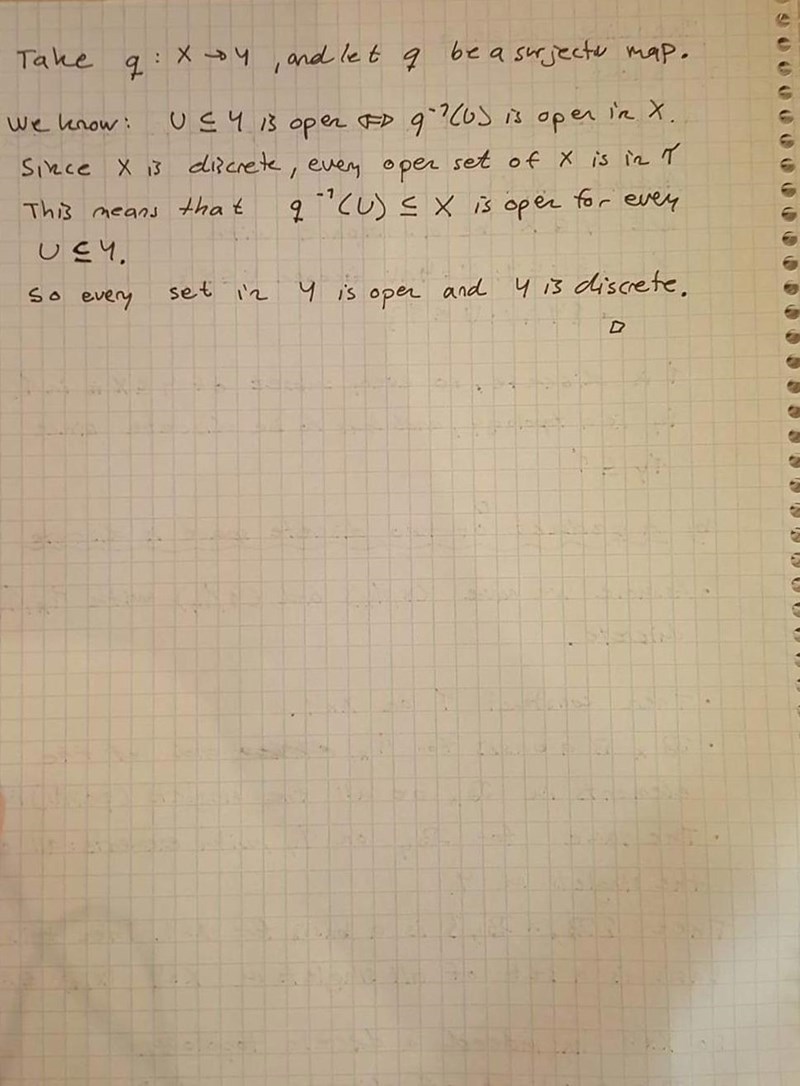 Take q : X → Y , and let q be a surjectv map.
We know: U ⊆ Y is open ⇔ q⁻¹(U) is open in X.
Since X is discrete, every open set of X is in τ
This means that q⁻¹(U) ⊆ X is open for every
U ⊆ Y.
So every set in Y is open and Y is discrete.
□